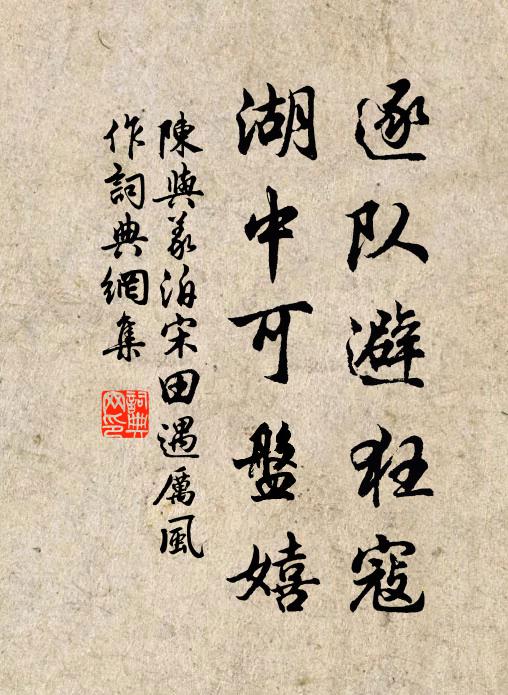 逐队避狂寇
湖中可盤嬉
陳與義泊宋田遇厲風
作詞典網集
詞典网印